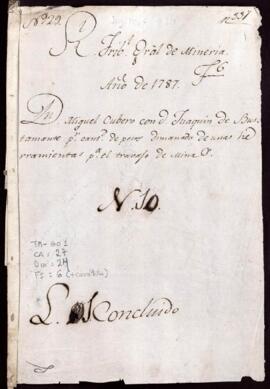 Nº 22
Rl. Tribl. Gral de Mineria
Año de 1787.
Dn. Miguel Cubero con dn. Joaquin de Bus
tamante pr. cantd. de pesos dimanado de unas he
rramientas pa. el travajo de Mina
N. 10.
CA: 27
FS: 6
L. Concluido